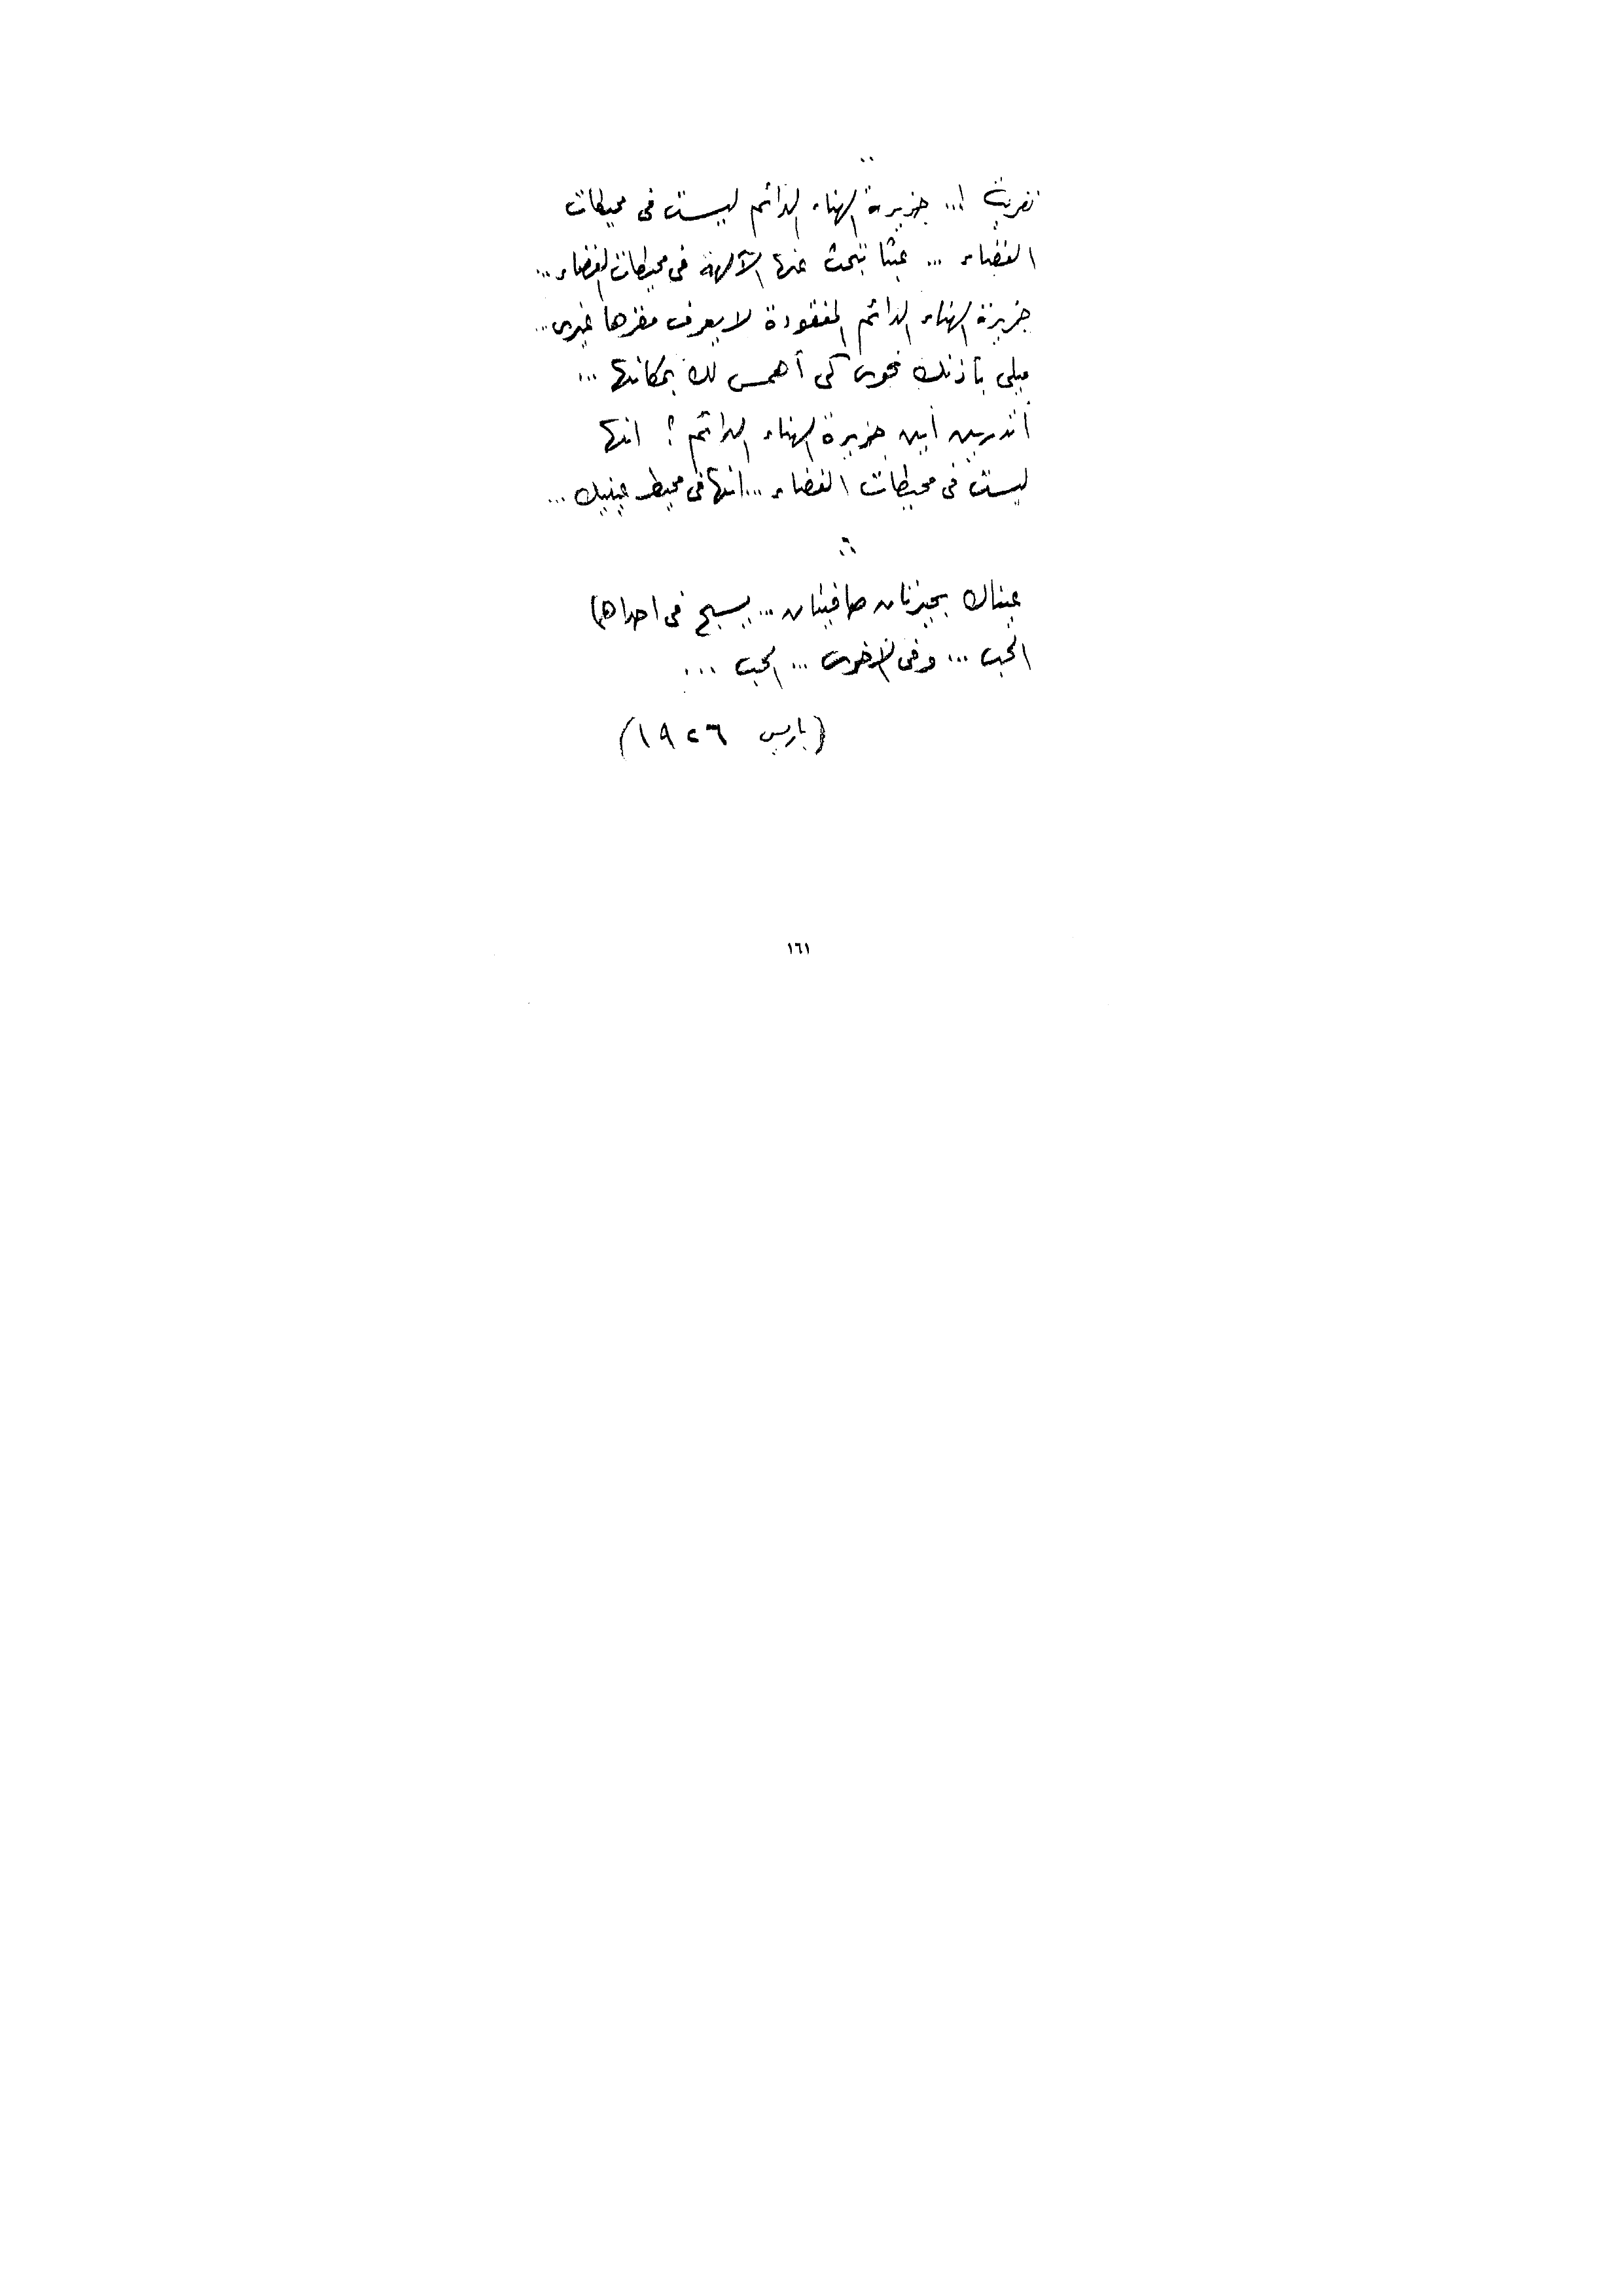 تقربت !... جزيرة الهناء الدائم ليست فى محيطات
الفضاء ... عبثا تبحث عنها الآلهة فى محيطات الفضاء ...
جزيرة الهناء الدائم المفقودة لا يعرف مقرها غيرى ...
ميلى بأذنك نحوى كى أهمس لك بمكانها ...
أتدرين أين جزيرة الهناء الدائم ؟ انها
ليست فى محيطات الفضاء ... انها فى محيط عينيك ...
عيناك بحيرتان صافيتان ... يسبح فى احداهما
الحب ... وفى الاخرى ... الحب ...
(باريس ١٩٢٦)
١٦١